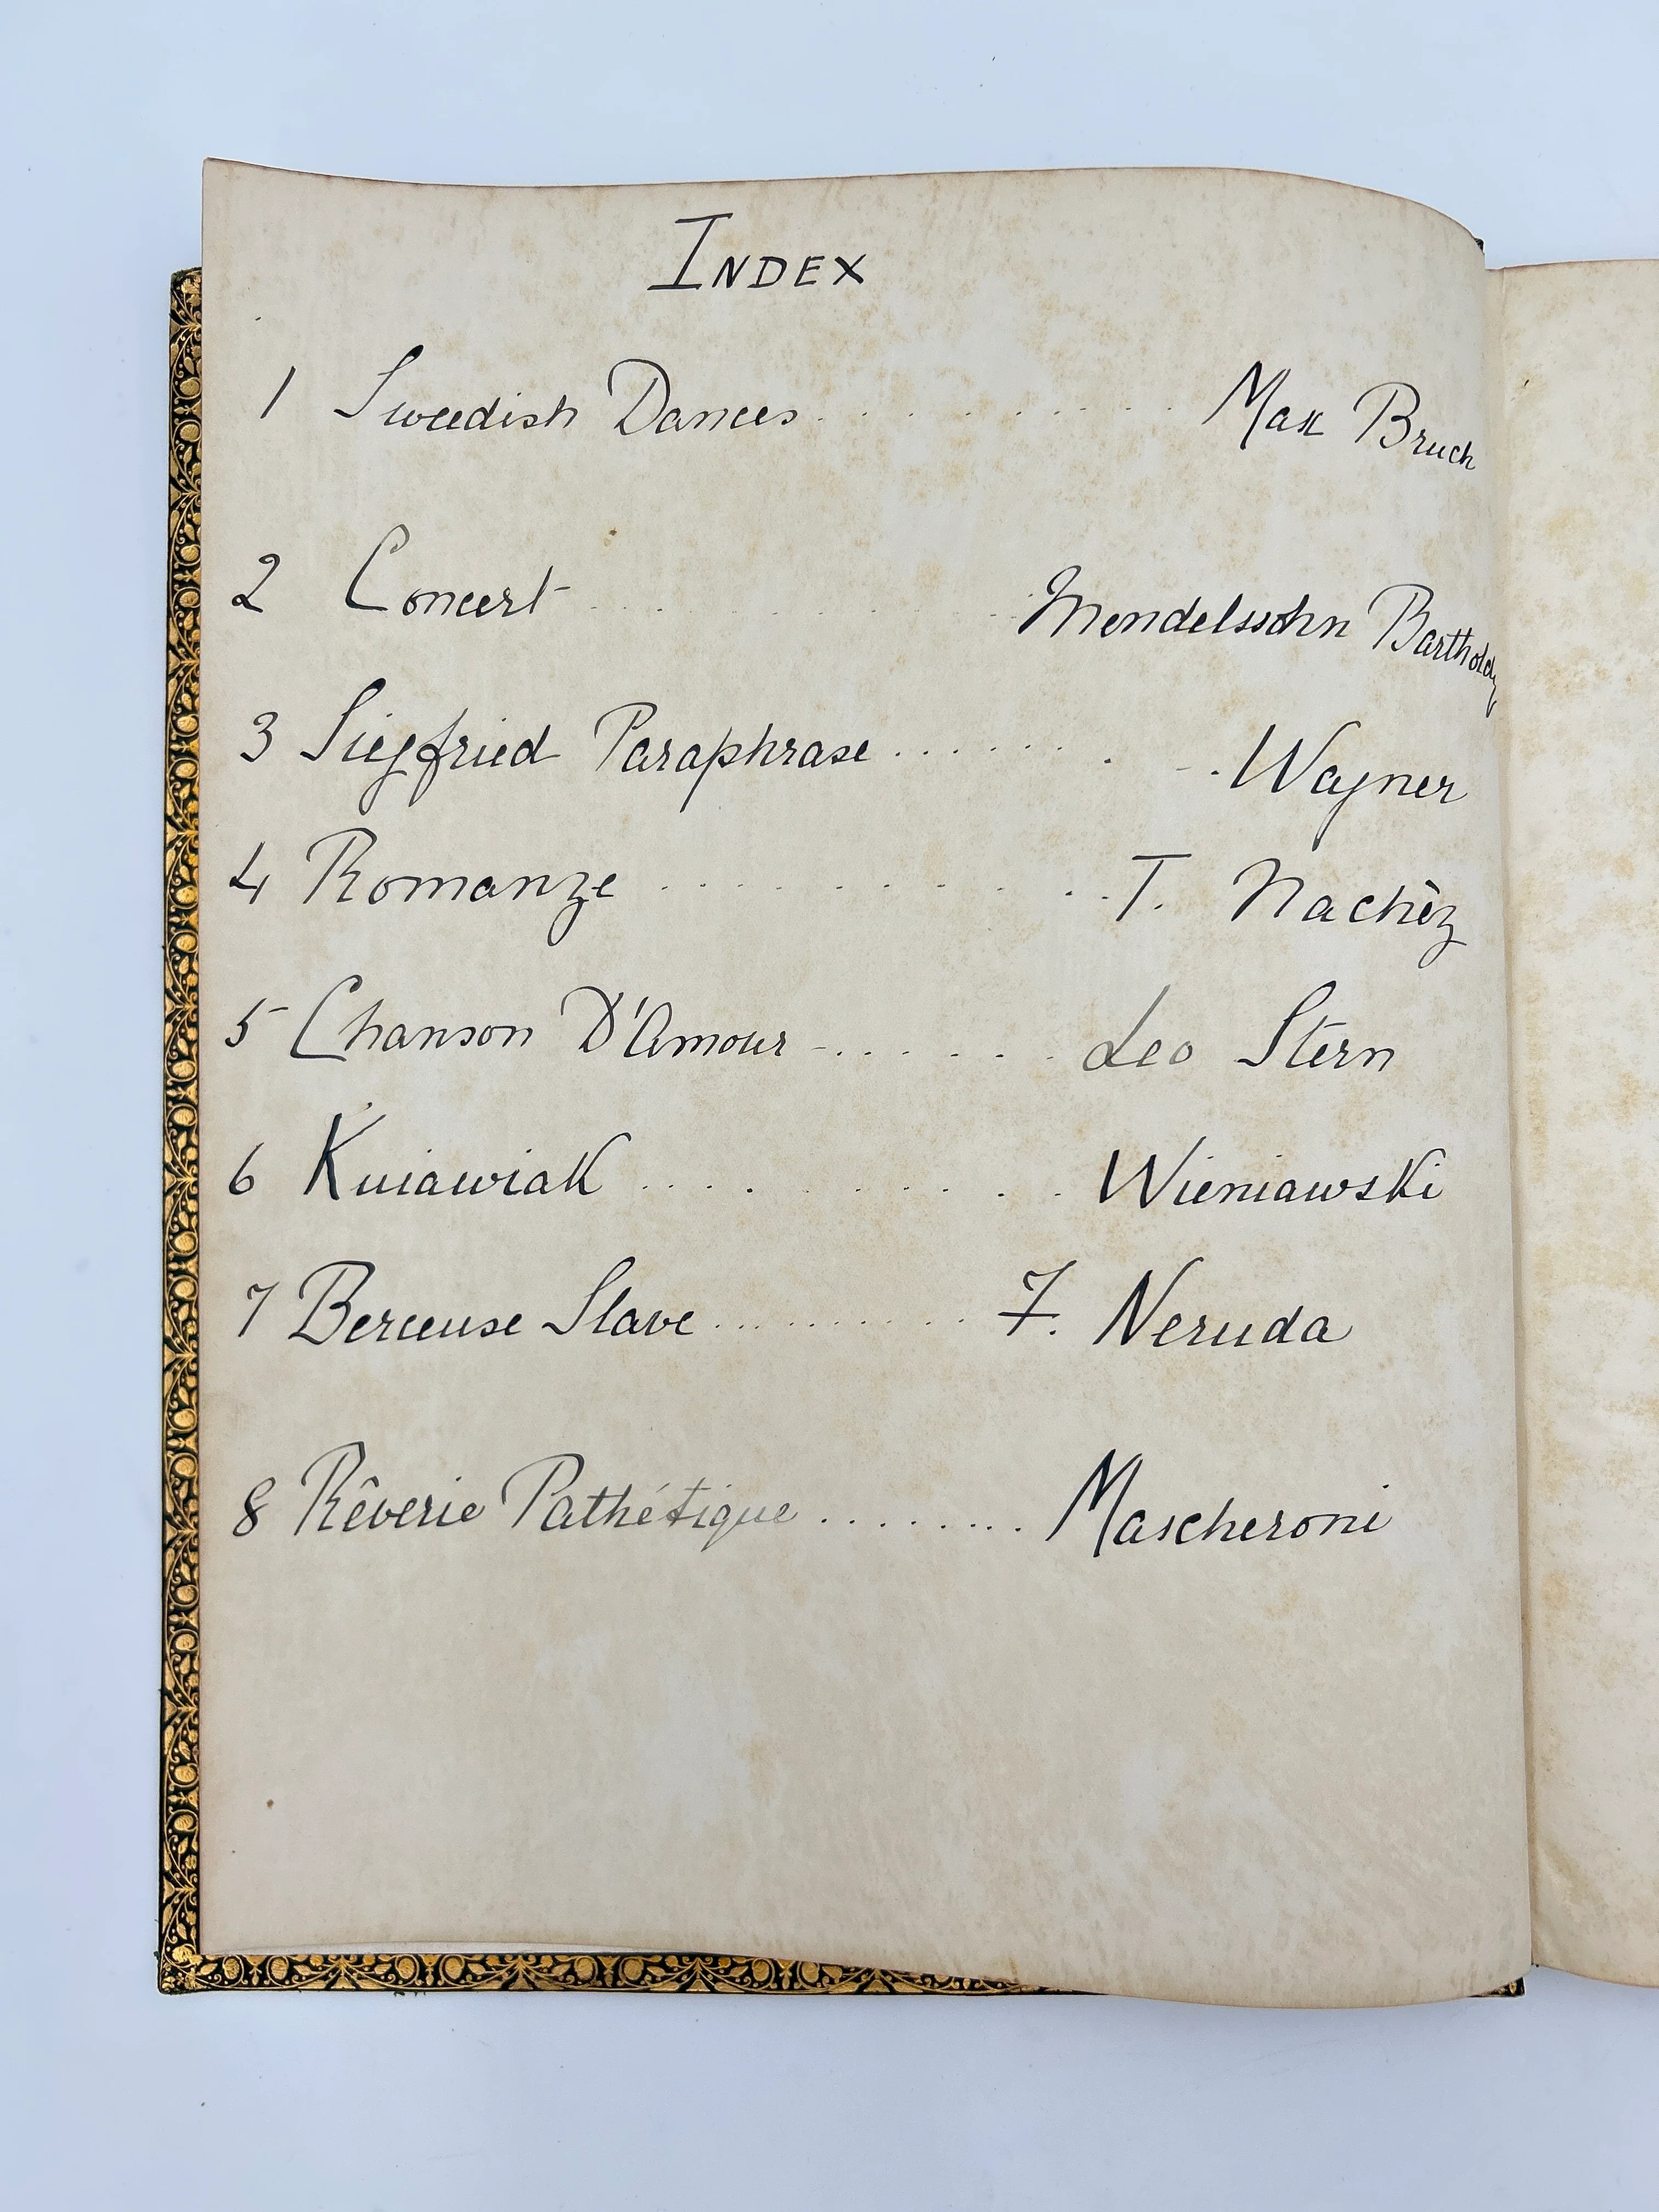 INDEX
1 Swedish Dances . . . . . . . . . . Max Bruch
2 Concert . . . . . . . . . Mendelssohn Bartholdy
3 Siegfried Paraphrase . . . . . . . - . Wagner
4 Romanze . . . . . . . . . . T. Nachèz
5 Chanson D'Amour - . . . . . . . Leo Stern
6 Kuiawiak . . . . . . . . . . Wieniawski
7 Berceuse Slave . . . . . . . . . . F. Neruda
8 Rêverie Pathétique . . . . . . . . . Mascheroni